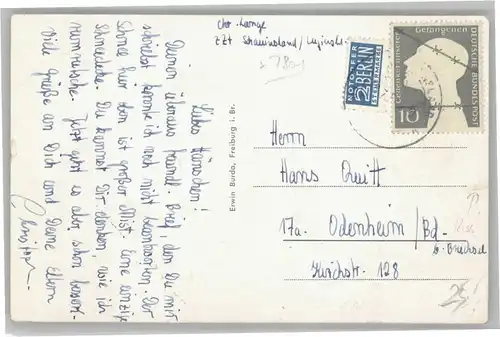 Chr. Lange
z Zt Schauinsland/
Liebes Hänschen!
Deinen überaus freundl. Brief, den Du mir
schriebst konnte ich noch nicht beantworten. Der
Schnee hier oben ist großer Mist. Eine einzige
Schneedecke. Du kannst Dir denken, wie ich
rumrutsche. Jetzt geht es aber schon besser.
Viele Grüße an Dich und Deine Eltern
Christoph
Erwin Burda, Freiburg i. Br.
NOTOPFER
2 BERLIN
STEUERMARKE
Gedenket unserer
Gefangenen
DEUTSCHE BUNDESPOST
10
Herrn
Hans Quitt
17a. Odenheim/Bd.
b. Bruchsal
Kirchstr. 128
25,-